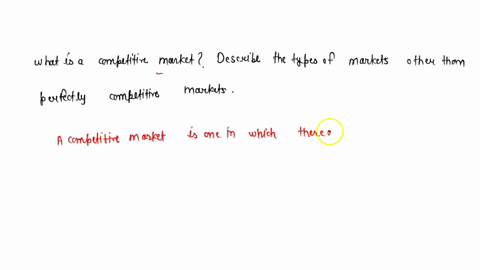 what is a competitive market? Describe the types of markets other than
perfectly competitive markets.
A competitive market is one in which there